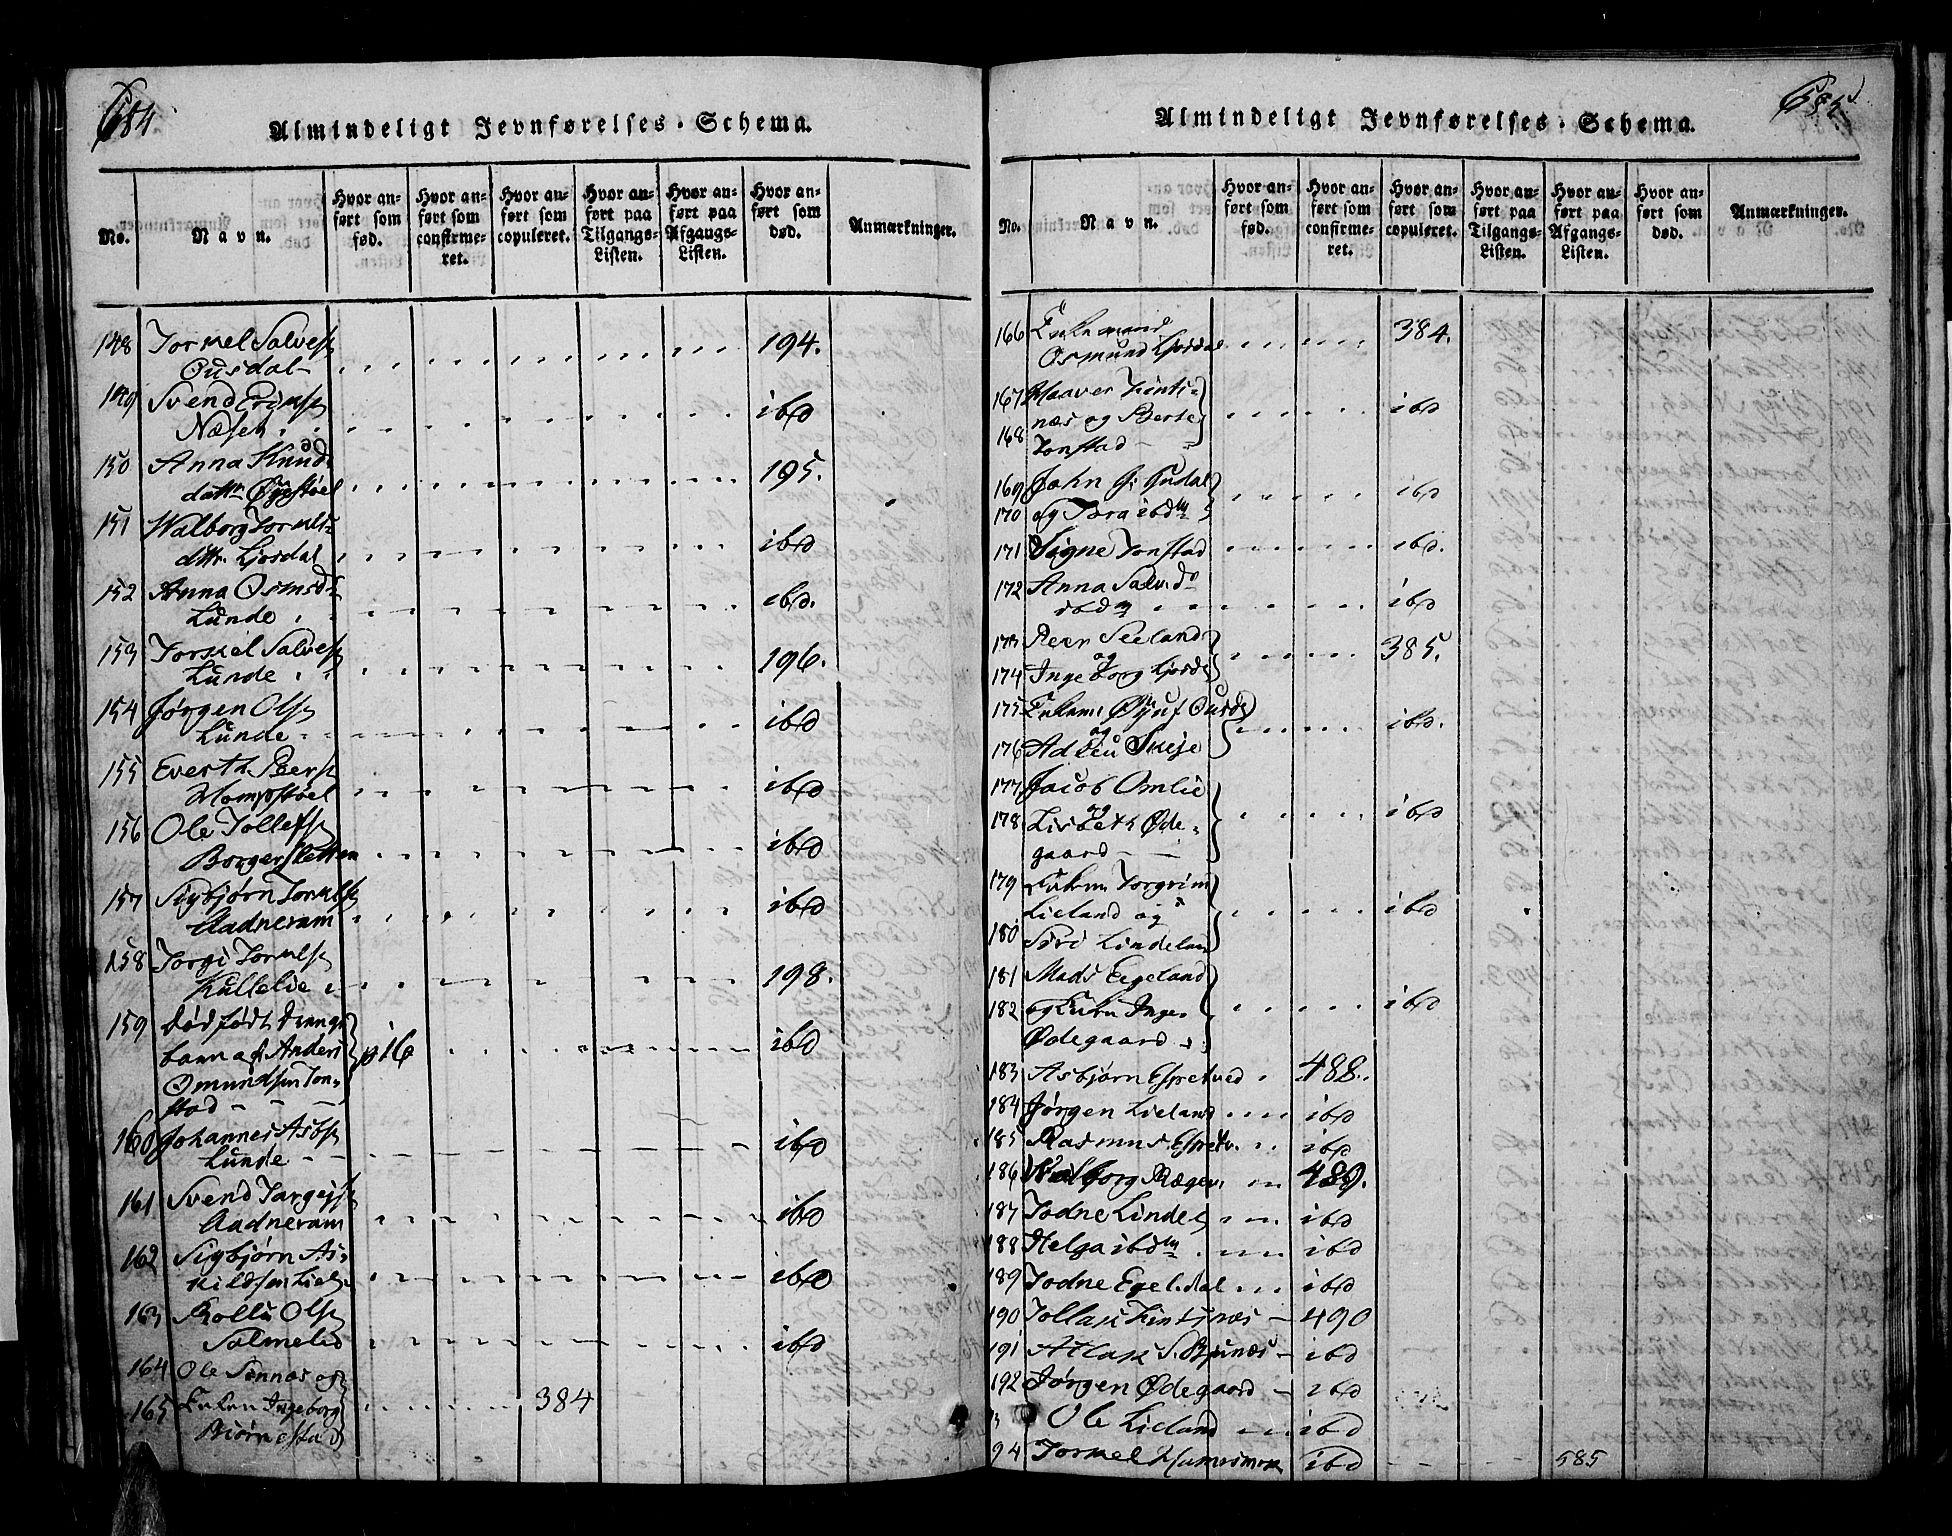 684
Almindeligt Jevnførelses-Schema.
No.
Navn.
Hvor an-
ført som
fød.
Hvor an-
ført som
confirme-
ret.
Hvor an-
ført som
copuleret.
Hvor an-
ført paa
Tilgangs-
Listen.
Hvor an-
ført paa
Afgangs-
Listen.
Hvor an-
ført som
død.
Anmærkninger.
148 Torkel Salves
Ousdal 194.
149 Svend
Næsen ibd
150 Anna Knuds
dattr Øyestøel 195.
151 Walborg Torkels
dttr. Liosdal ibd
152 Anna Osmsd
Lunde ibd.
153 Torkel Salves
Lunde 196.
154 Jørgen Ols
Lunde ibd
155 Everth Peers
Hompstøel ibd
156 Ole Tollefs
Borgersletten ibd
157 Sigbjørn Torkels
Aadneram ibd
158 Torgi Torkels
Kullelie 198.
159 dødfødt Drenge
barn af Anders p16
Omundsen Ton-
stad ibd
160 Johannes Asbs
Lunde ibd
161 Svend Targejs
Aadneram ibd
162 Sigbjørn As-
kildsen Liel ibd
163 Rolli Ols
Salmelid ibd
164 Ole Sinnæs og
165 Enken Ingeborg 384
Biørnestad
685
Almindeligt Jevnførelses-Schema.
No.
Navn.
Hvor an-
ført som
fød.
Hvor an-
ført som
confirme-
ret.
Hvor an-
ført som
copuleret.
Hvor an-
ført paa
Tilgangs-
Listen.
Hvor an-
ført paa
Afgangs-
Listen.
Hvor an-
ført som
død.
Anmærkninger.
166 Enkemand
Osmund Liosdal 384.
167 Haaver Fints-
næs og Berte ibd
168 Tonstad
169 John G: Sudal
170 og Tora ibdm ibd
171 Signe Tonstad ibd.
172 Anna Salvd
ibdm ibd
173 Peer Seeland
og 385.
174 Ingeborg Liosdl
175 Enkem: Øyuf Ousdl
og ibd.
176 Skeje
177 Jacob Omlie
og
178 Lisbeth Øde- ibd
gaard
179 Enkem Torgrim
Lieland og ibd
180 Siri Lindeland
181 Mads Egeland
182 og Enken Inge ibd
Ødegaard
183 Asbjørn Espetved 488.
184 Jørgen Lieland ibd
185 Rasmus Espetv. ibd
186 Walborg Røgev. 489.
187 Todne Lindel ibd
188 Helga ibdm ibd
189 Todne Egelsdal ibd
190 Tollak Fintsnæs 490
191 Atlak S. ibd
192 Jørgen Ødegaard ibd
3 Ole Lieland ibd
94 Tormel ibd
585